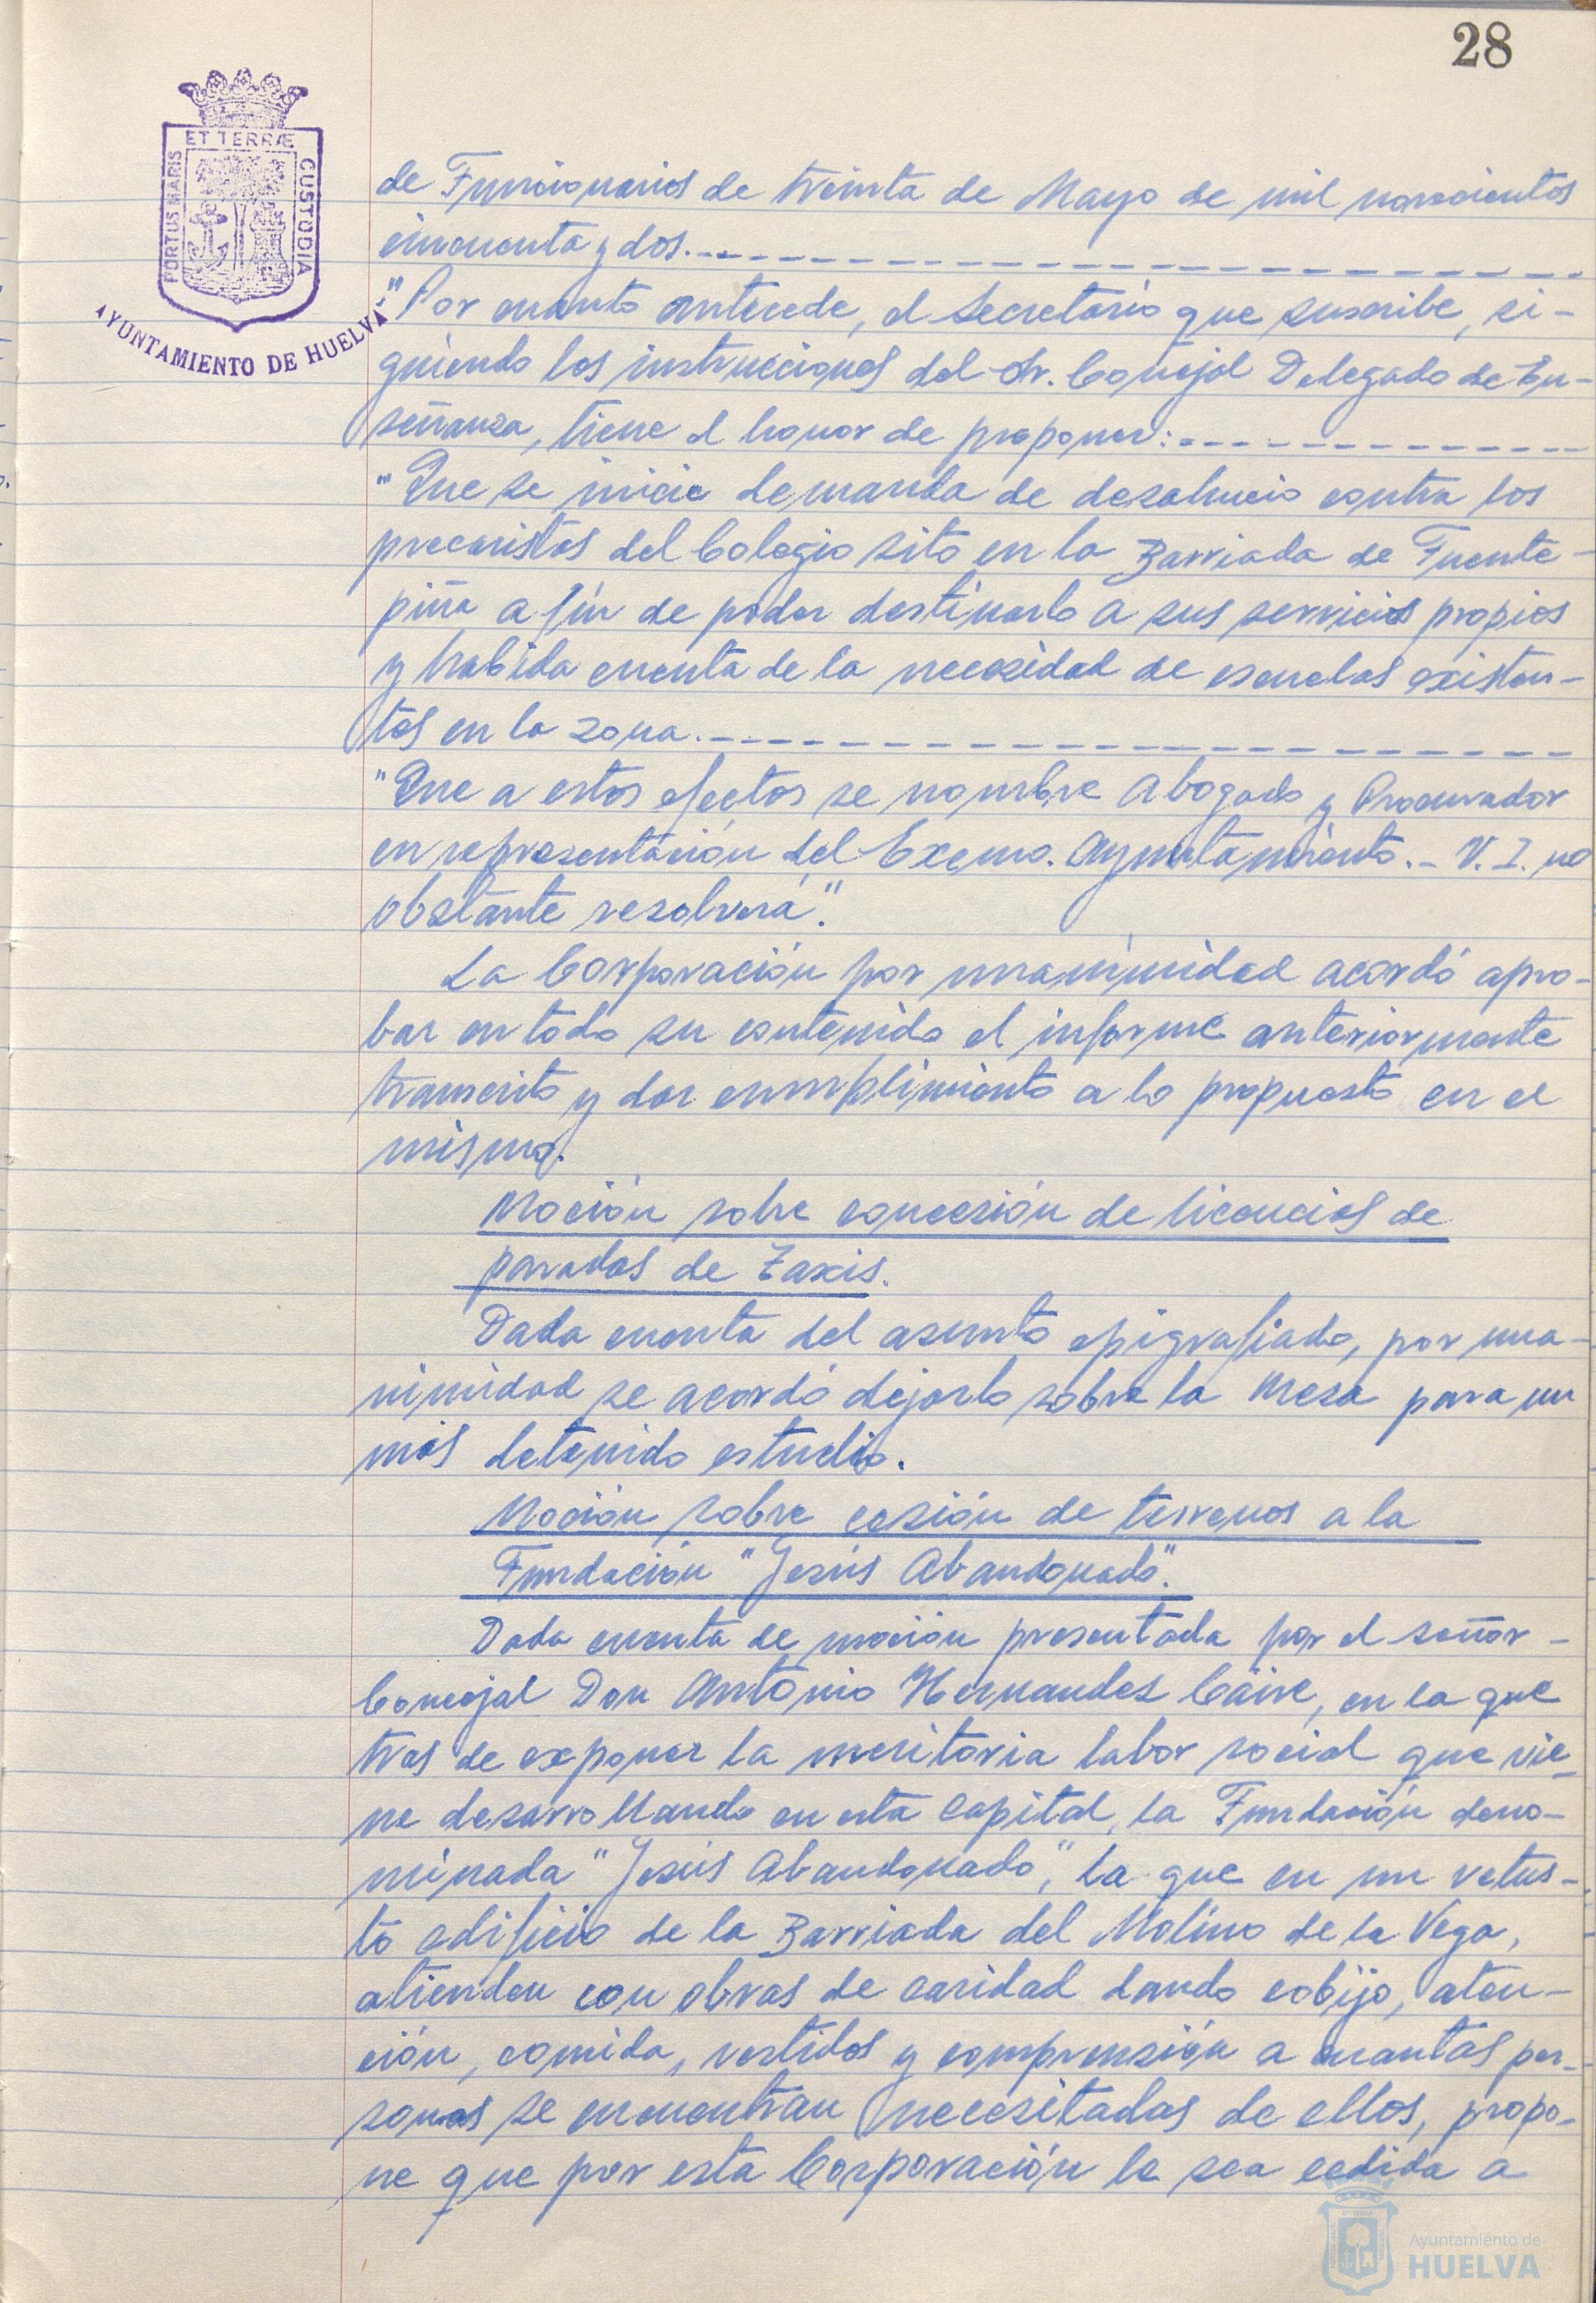 28
ET TERRÆ
PORTUS MARIS
CUSTODIA
AYUNTAMIENTO DE HUELVA
de Funcionarios de treinta de Mayo de mil novecientos
cincuenta y dos.
"Por cuanto antecede, el Secretario que suscribe, si-
guiendo las instrucciones del Sr. Concejal Delegado de En-
señanza, tiene el honor de proponer:
"Que se inicie demanda de desahucio contra los
precaristas del Colegio sito en la Barriada de Fuente-
piña a fin de poder destinarlo a sus servicios propios
y habida cuenta de la necesidad de escuelas existen-
tes en la zona.
"Que a estos efectos se nombre Abogado y Procurador
en representación del Excmo. Ayuntamiento.- V. I. no
obstante resolverá".
La Corporación por unanimidad acordó apro-
bar en todo su contenido el informe anteriormente
transcrito y dar cumplimiento a lo propuesto en el
mismo.
Moción sobre concesión de licencias de
paradas de Taxis.
Dada cuenta del asunto epigrafiado, por una-
nimidad se acordó dejarlo sobre la Mesa para un
más detenido estudio.
Moción sobre cesión de terrenos a la
Fundación "Jesús Abandonado".
Dada cuenta de moción presentada por el señor-
Concejal Don Antonio Hernandez Caire, en la que
tras de exponer la meritoria labor social que vie-
ne desarrollando en esta Capital, la Fundación deno-
minada "Jesús Abandonado", la que en un vetus-
to edificio de la Barriada del Molino de la Vega,
atienden con obras de caridad dando cobijo, aten-
ción, comida, vestidos y comprensión a cuantas per-
sonas se encuentran necesitadas de ellos, propo-
ne que por esta Corporación le sea cedida a
Ayuntamiento de
HUELVA